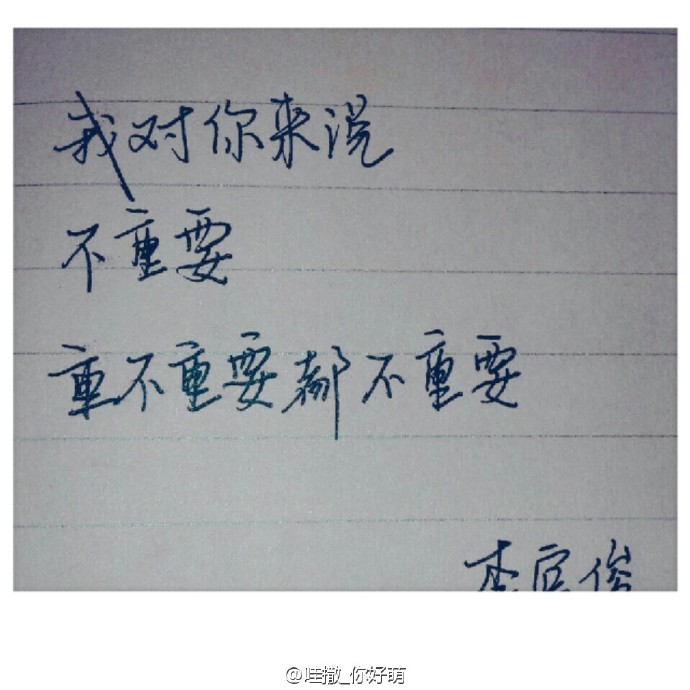 我对你来说
不重要
重不重要都不重要
@哇撒_你好萌